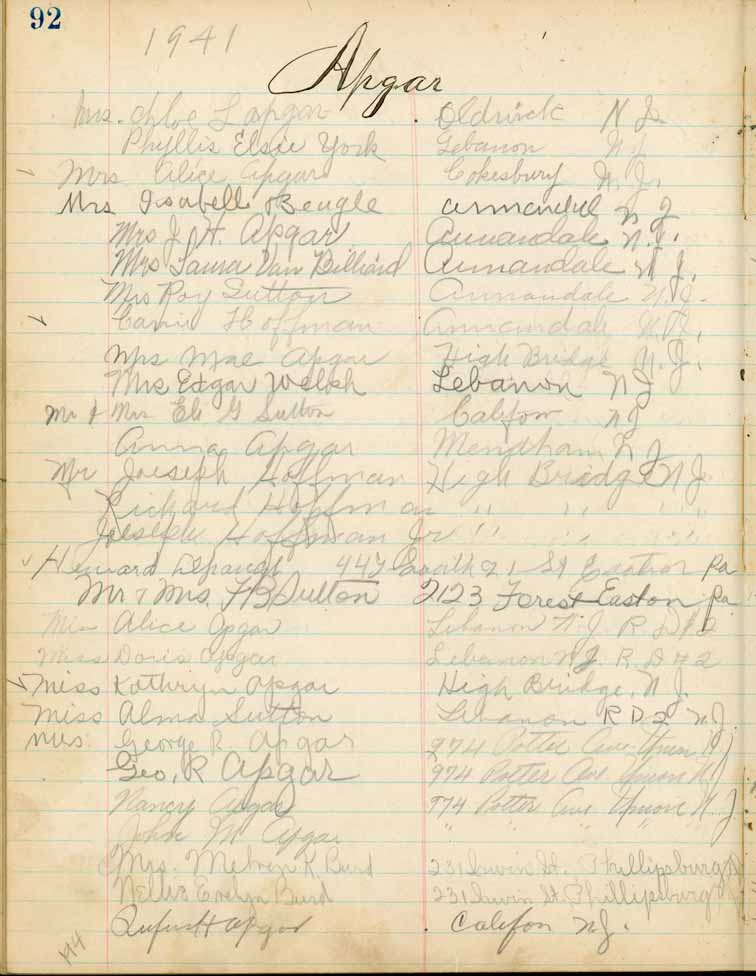 92
1941
Apgar
Mrs. Chloe L Apgar Oldwick N J.
Phyllis Elsie York Lebanon N J
Mrs Alice Apgar Cokesbury N. J.
Mrs Isabell Beagle annandel N J
Mrs J. H. Apgar Annandale, N. J.
Mrs Laura Van Billiard Annandale N J.
Mrs Roy Sutton Annandale N. J.
Carrie Hoffman Annandale N. J.
Mrs Mae Apgar High Bridge N. J.
Mrs Edgar Welsh Lebanon N J
Mr & Mrs Eli G Sutton Califon NJ
Anna Apgar Mendham N J
Mr Joeseph Hoffman High Bridge N J.
Richard Hoffman " " "
Joeseph Hoffman Jr " " "
447 South 21 St Easton Pa
Mr & Mrs. F B Sutton 2123 Forest Easton Pa
Miss Alice Apgar Lebanon N. J. R D # 2
Miss Doris Apgar Lebanon N J. R. D # 2
Miss Kathryn Apgar High Bridge, N J.
Miss Alma Sutton Lebanon R D 2 N. J.
Mrs. George R. Apgar 974 Potter Ave. Union N J
Geo. R Apgar 974 Potter Ave. Union N J
Nancy Apgar 974 Potter Ave Union N. J.
John M Apgar " " "
Mrs. Melvyn K. Burd 231 Irwin St. Phillipsburg NJ
Nellie Evelyn Burd 231 Irwin St Phillipsburg NJ
Rufus H Apgar Califon N J.